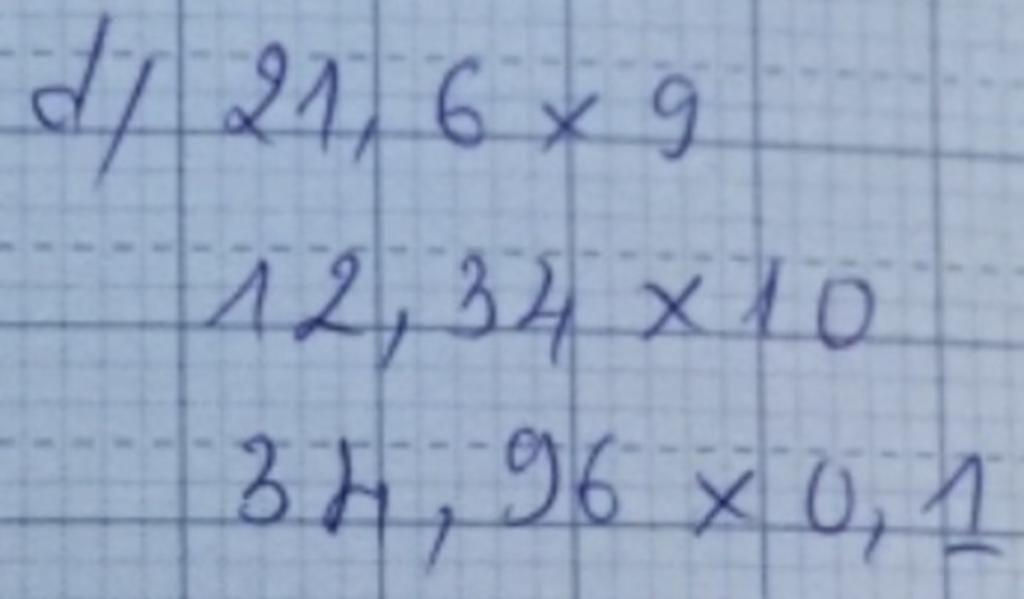 d/ 21,6 x 9
12,34 x 10
34,96 x 0,1